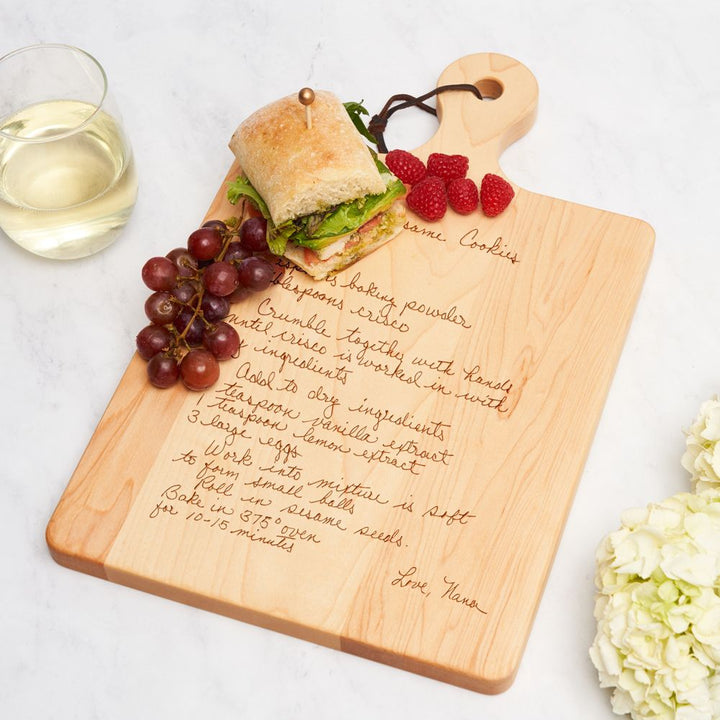 Cookies
baking powder
crisco
Crumble together with hands
until crisco is worked in with
ingredients
Add to dry ingredients
1 teaspoon vanilla extract
1 teaspoon lemon extract
3 large eggs
Work into mixture is soft
to form small balls
Roll in sesame seeds.
Bake in 375° oven
for 10-15 minutes
Love, Nana